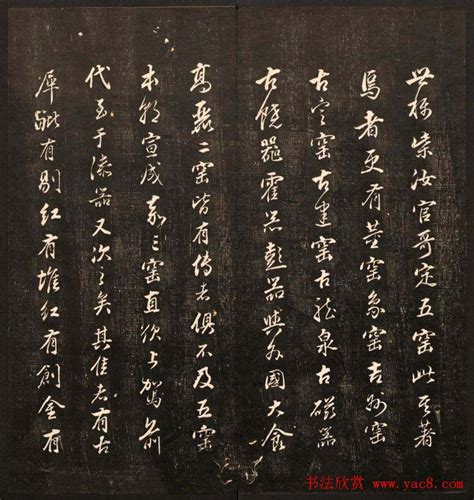 世称柴汝官哥定五窑此其著
焉者更有董窑象窑吉州窑
古定窑古建窑古龍泉古磁器
古饒器霍器彭器與外國大食
高麗二窑皆有傳者俱不及五窑
本朝宣成嘉三窑直欲上駕前
代至于漆器又次之矣其佳者有古
犀毗有剔红有堆红有創金有
书法欣赏 www.yac8.com